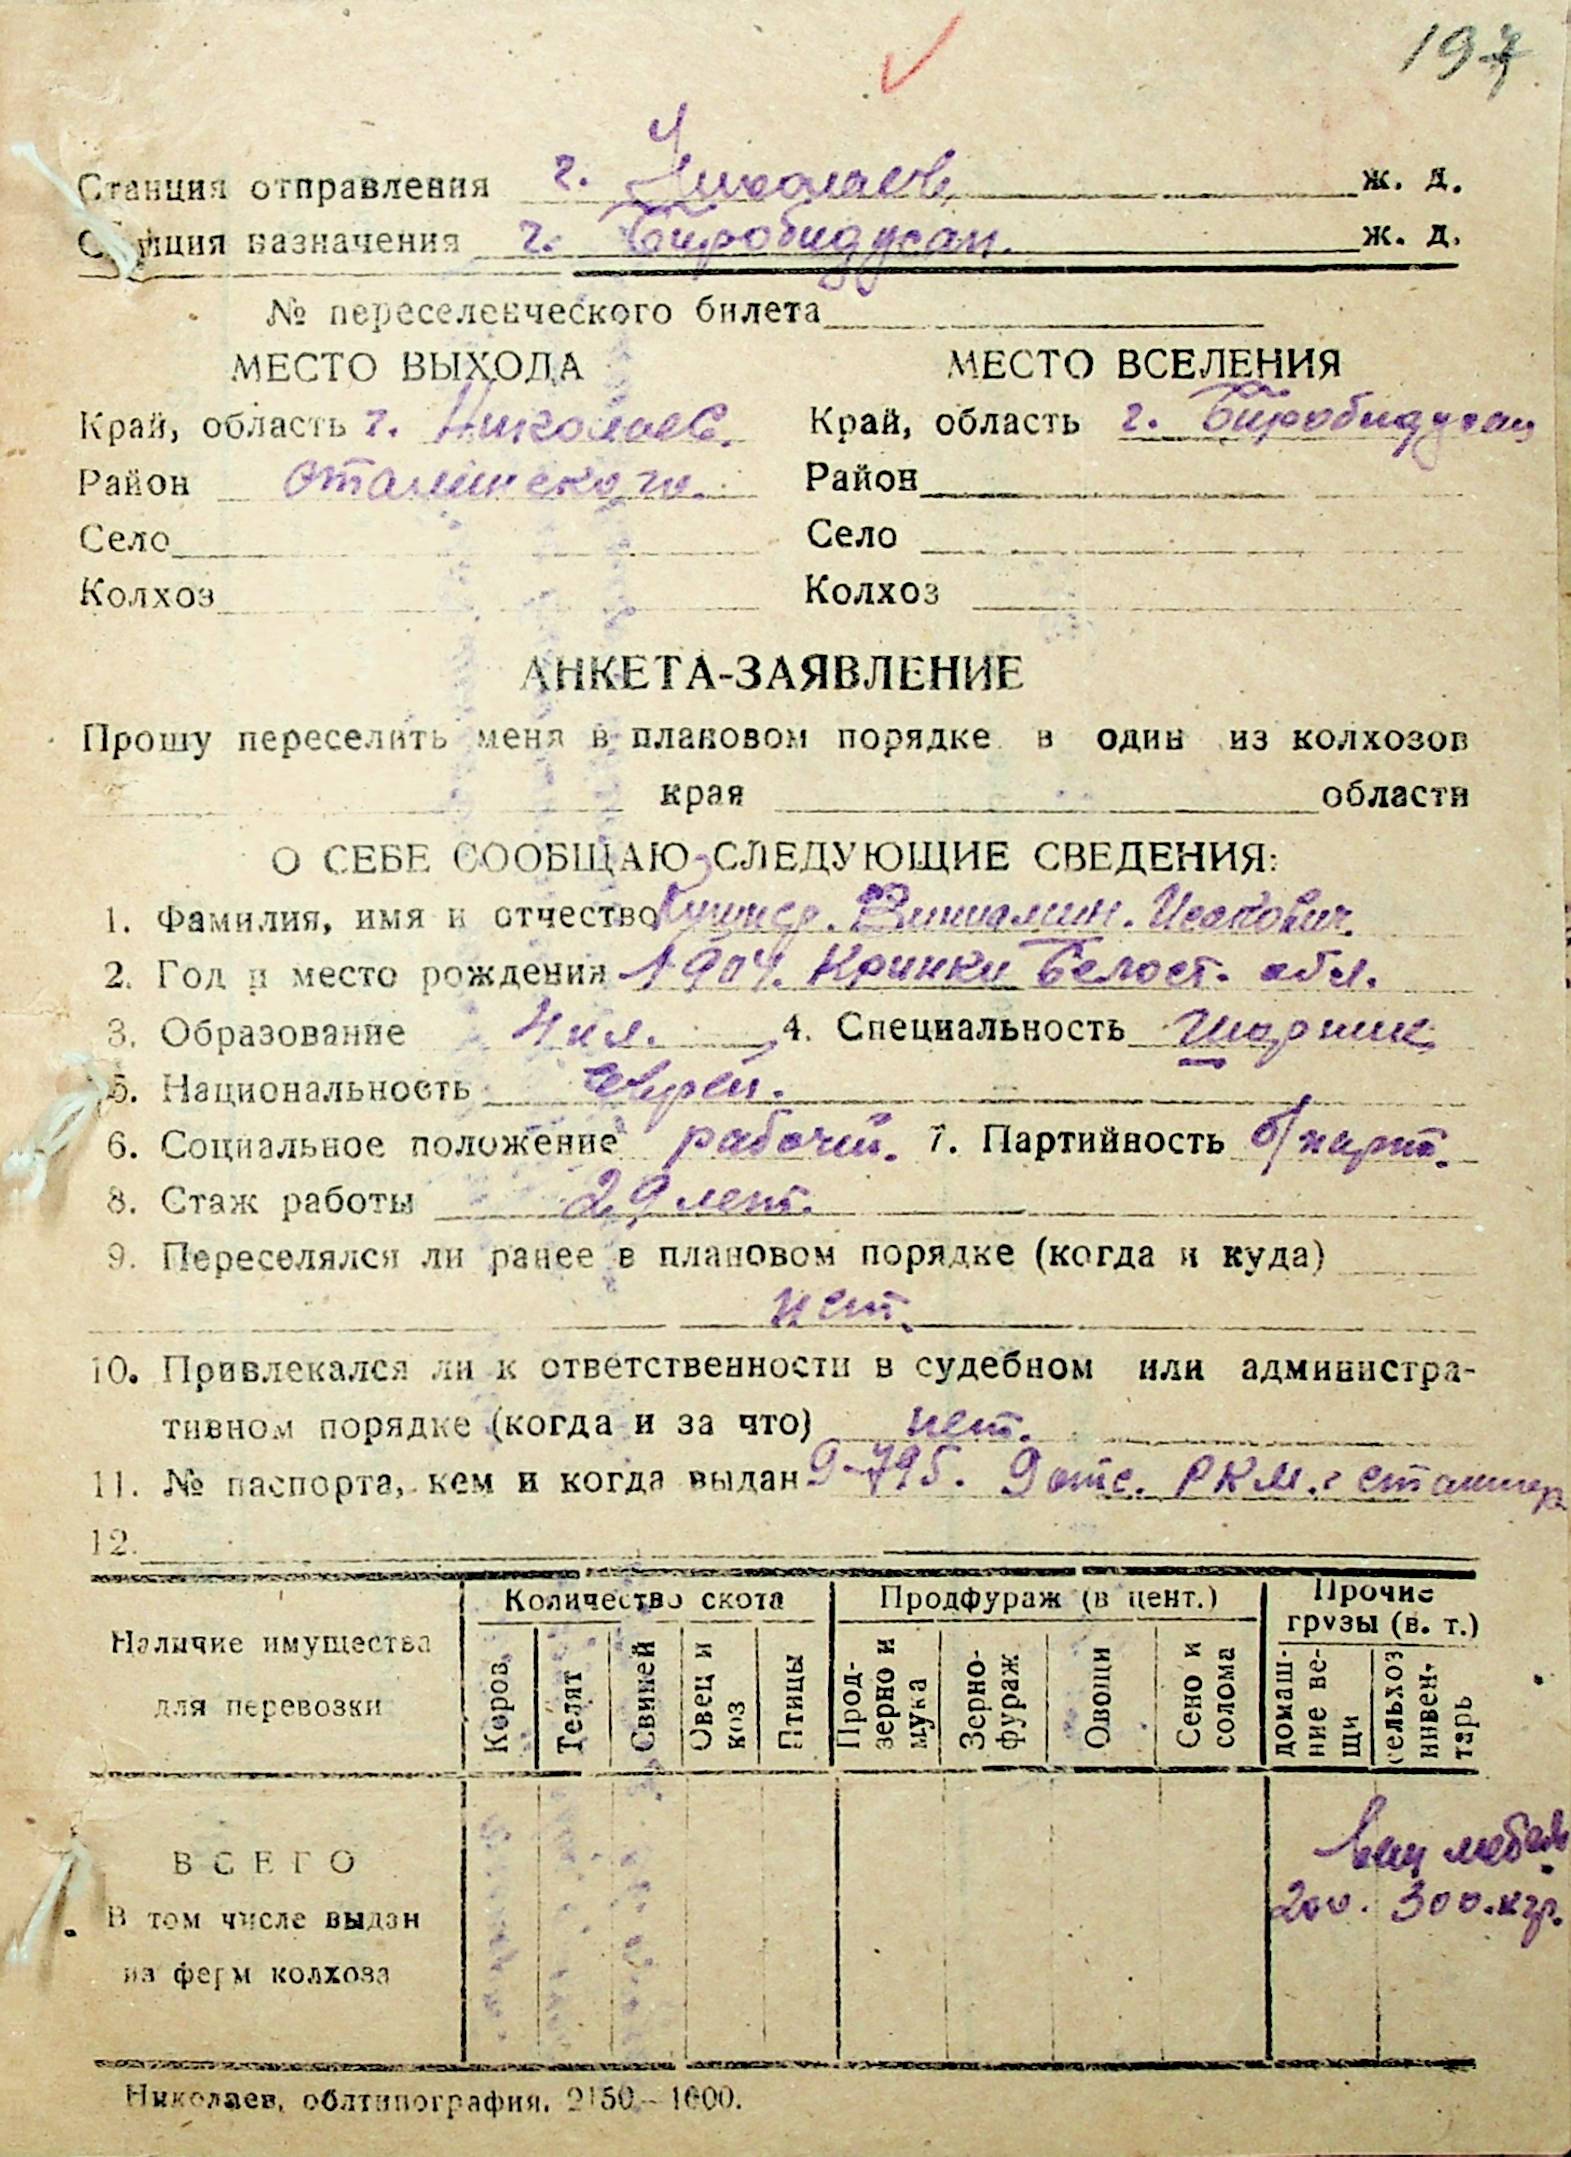 197
Станция отправления г. Николаев ж. д.
Станция назначения г. Биробиджан. ж. д.
№ переселенческого билета
МЕСТО ВЫХОДА МЕСТО ВСЕЛЕНИЯ
Край, область г. Николаев. Край, область г. Биробиджан
Район Сталинского. Район
Село Село
Колхоз Колхоз
АНКЕТА-ЗАЯВЛЕНИЕ
Прошу переселить меня в плановом порядке в один из колхозов
края области
О СЕБЕ СООБЩАЮ СЛЕДУЮЩИЕ СВЕДЕНИЯ:
1. Фамилия, имя и отчество Кушнер. Виниамин. Исакович.
2. Год и место рождения 1904. Кринки Белост. обл.
3. Образование 4 кл. 4. Специальность шорник
5. Национальность еврей.
6. Социальное положение рабочий. 7. Партийность б/парт.
8. Стаж работы 29 лет.
9. Переселялся ли ранее в плановом порядке (когда и куда)
нет.
10. Привлекался ли к ответственности в судебном или администра-
тивном порядке (когда и за что) нет.
11. № паспорта, кем и когда выдан 9-795. 9 отд. РКМ. г
12.
Наличие имущества для перевозки
Количество скота
Продфураж (в цент.)
Прочие грузы (в. т.)
Коров
Телят
Свиней
Овец и коз
Птицы
Прод-зерно и мука
Зерно-фураж
Овощи
Сено и солома
домаш-ние ве-щи
сельхоз инвен-тарь
ВСЕГО
вещ мебель
200. 300. кгр.
В том числе выдан
из ферм колхоза
Николаев, облтипография. 2150—1000.